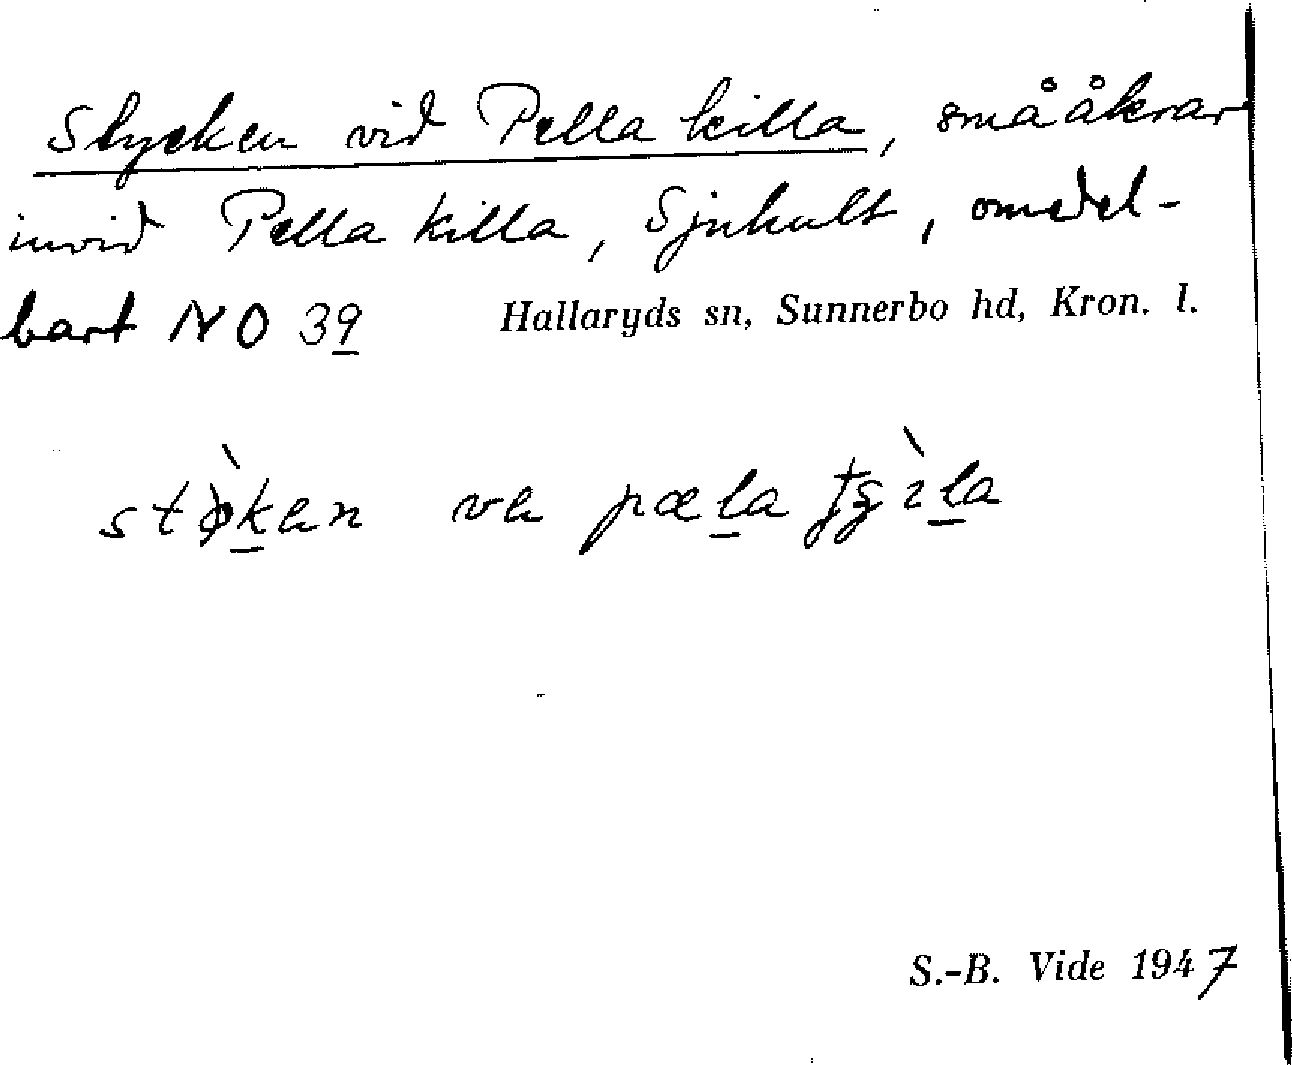 Stycken vid Pella killa, små åkrar
invid Pella killa, Sjuhult, omedel-
bart NO 39 Hallaryds sn, Sunnerbo hd, Kron. l.
va pæla
S.-B. Vide 1947